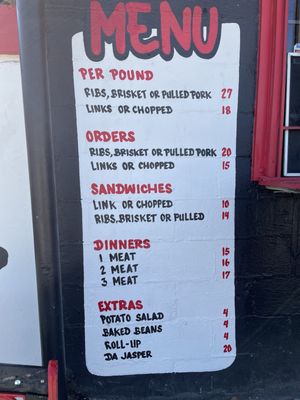 MENU
PER POUND
RIBS, BRISKET OR PULLED PORK 27
LINKS OR CHOPPED 18
ORDERS
RIBS, BRISKET OR PULLED PORK 20
LINKS OR CHOPPED 15
SANDWICHES
LINK OR CHOPPED 10
RIBS.BRISKET OR PULLED 14
DINNERS
1 MEAT 15
2 MEAT 16
3 MEAT 17
EXTRAS
POTATO SALAD 4
BAKED BEANS 4
ROLL-UP 4
DA JASPER 20